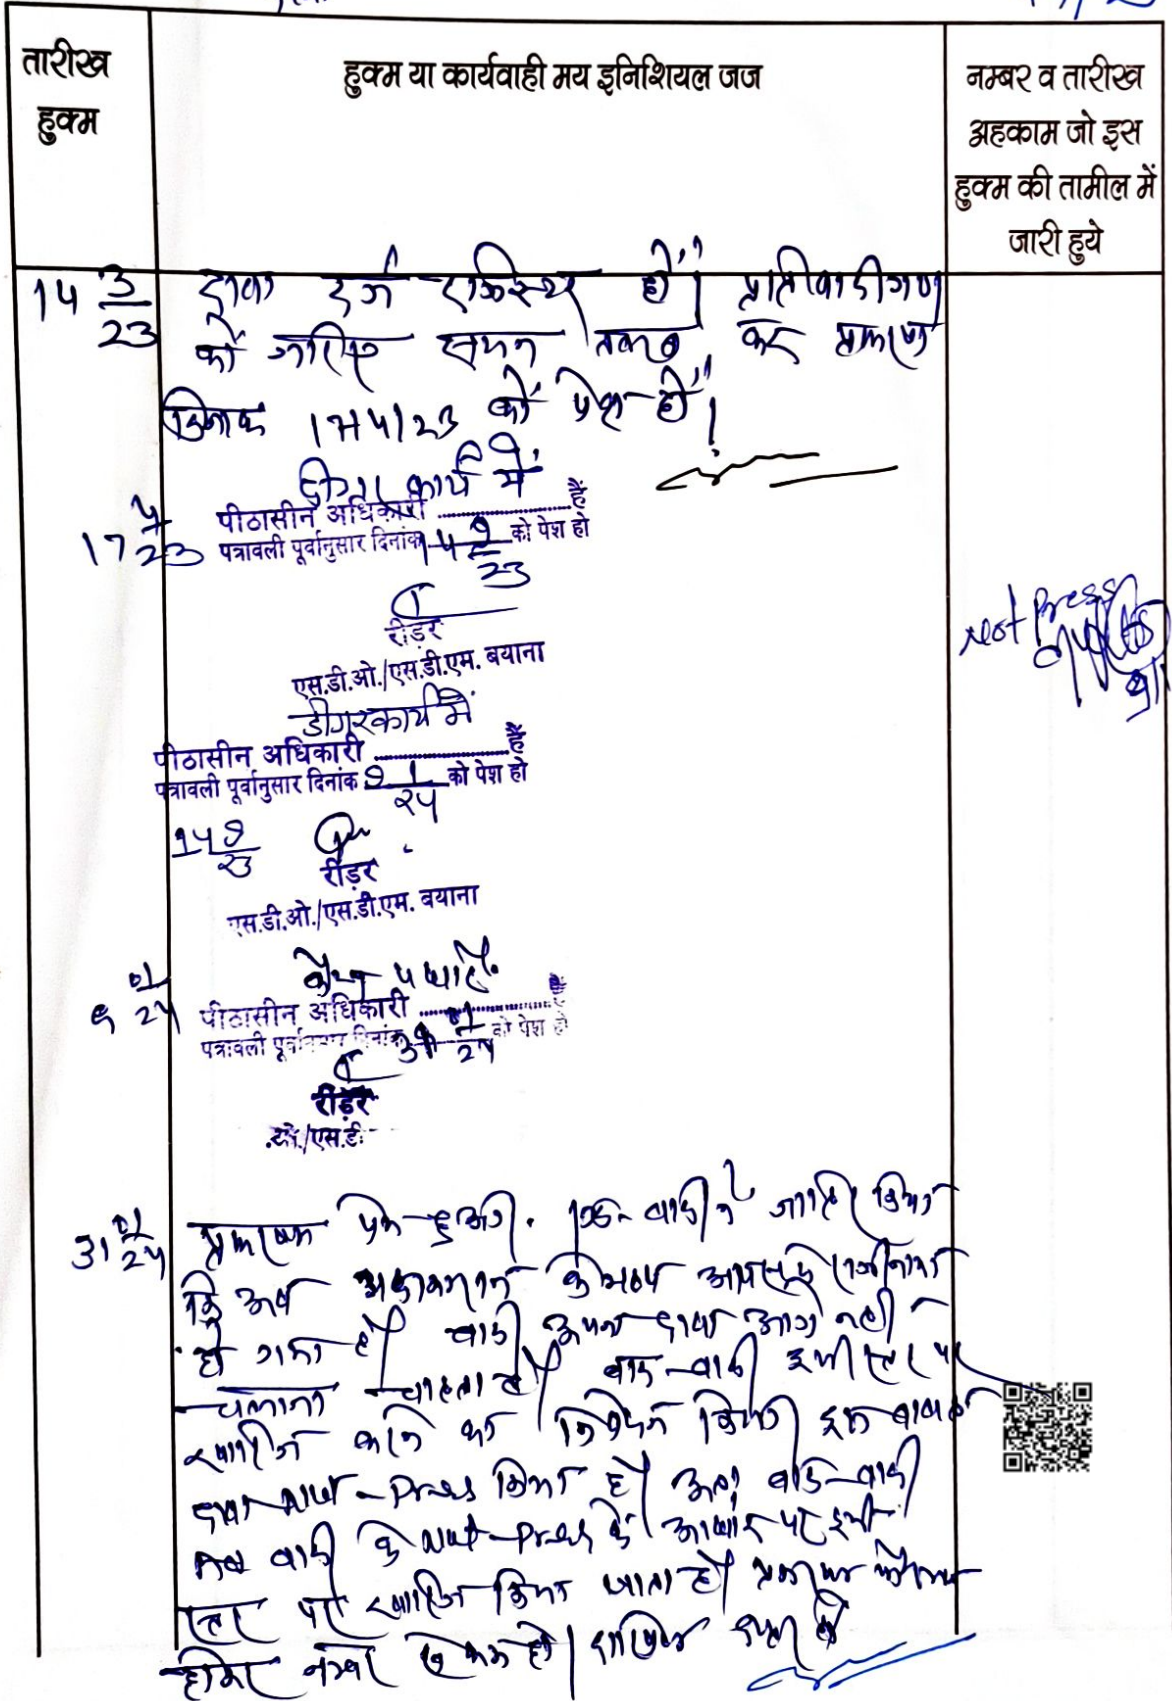 तारीख
हुक्म
हुक्म या कार्यवाही मय इनिशियल जज
नम्बर व तारीख
अहकाम जो इस
हुक्म की तामील में
जारी हुये
14 3/23 दावा दर्ज रजिस्टर हो। प्रतिवादीगण
को जरिए समन तलब कर प्रकरण
दिनांक 17/4/23 को पेश हो।
दीगर कार्य में
17 4/23 पीठासीन अधिकारी ........ हैं
पत्रावली पूर्वानुसार दिनांक 14 9/23 को पेश हो
रीडर
एस.डी.ओ./एस.डी.एम. बयाना
Not Press
दीगर कार्य में
पीठासीन अधिकारी ........ हैं
पत्रावली पूर्वानुसार दिनांक 9 1/24 को पेश हो
14 9/23
रीडर
एस.डी.ओ./एस.डी.एम. बयाना
9 01/24
पीठासीन अधिकारी ........ है
पत्रावली पूर्वानुसार दिनांक 31 01/24 को पेश हो
रीडर
ओ./एस.डी.
31 01/24 प्रकरण पेश हुआ। वादी ने जाहिर किया
कि अब पक्षकारान के मध्य आपस में राजीनामा
हो गया है। वादी अपना दावा आगे नहीं
चलाना चाहता है। वाद-वादी इसी स्तर पर
खारिज करने का निवेदन किया। इस बाबत
दावा नोट-Press किया है। अतः वाद-वादी
वादी के नोट-Press के आधार पर इसी
स्तर पर खारिज किया जाता है। प्रकरण फैसल
होकर नम्बर से कम हो। दाखिल दफ्तर हो